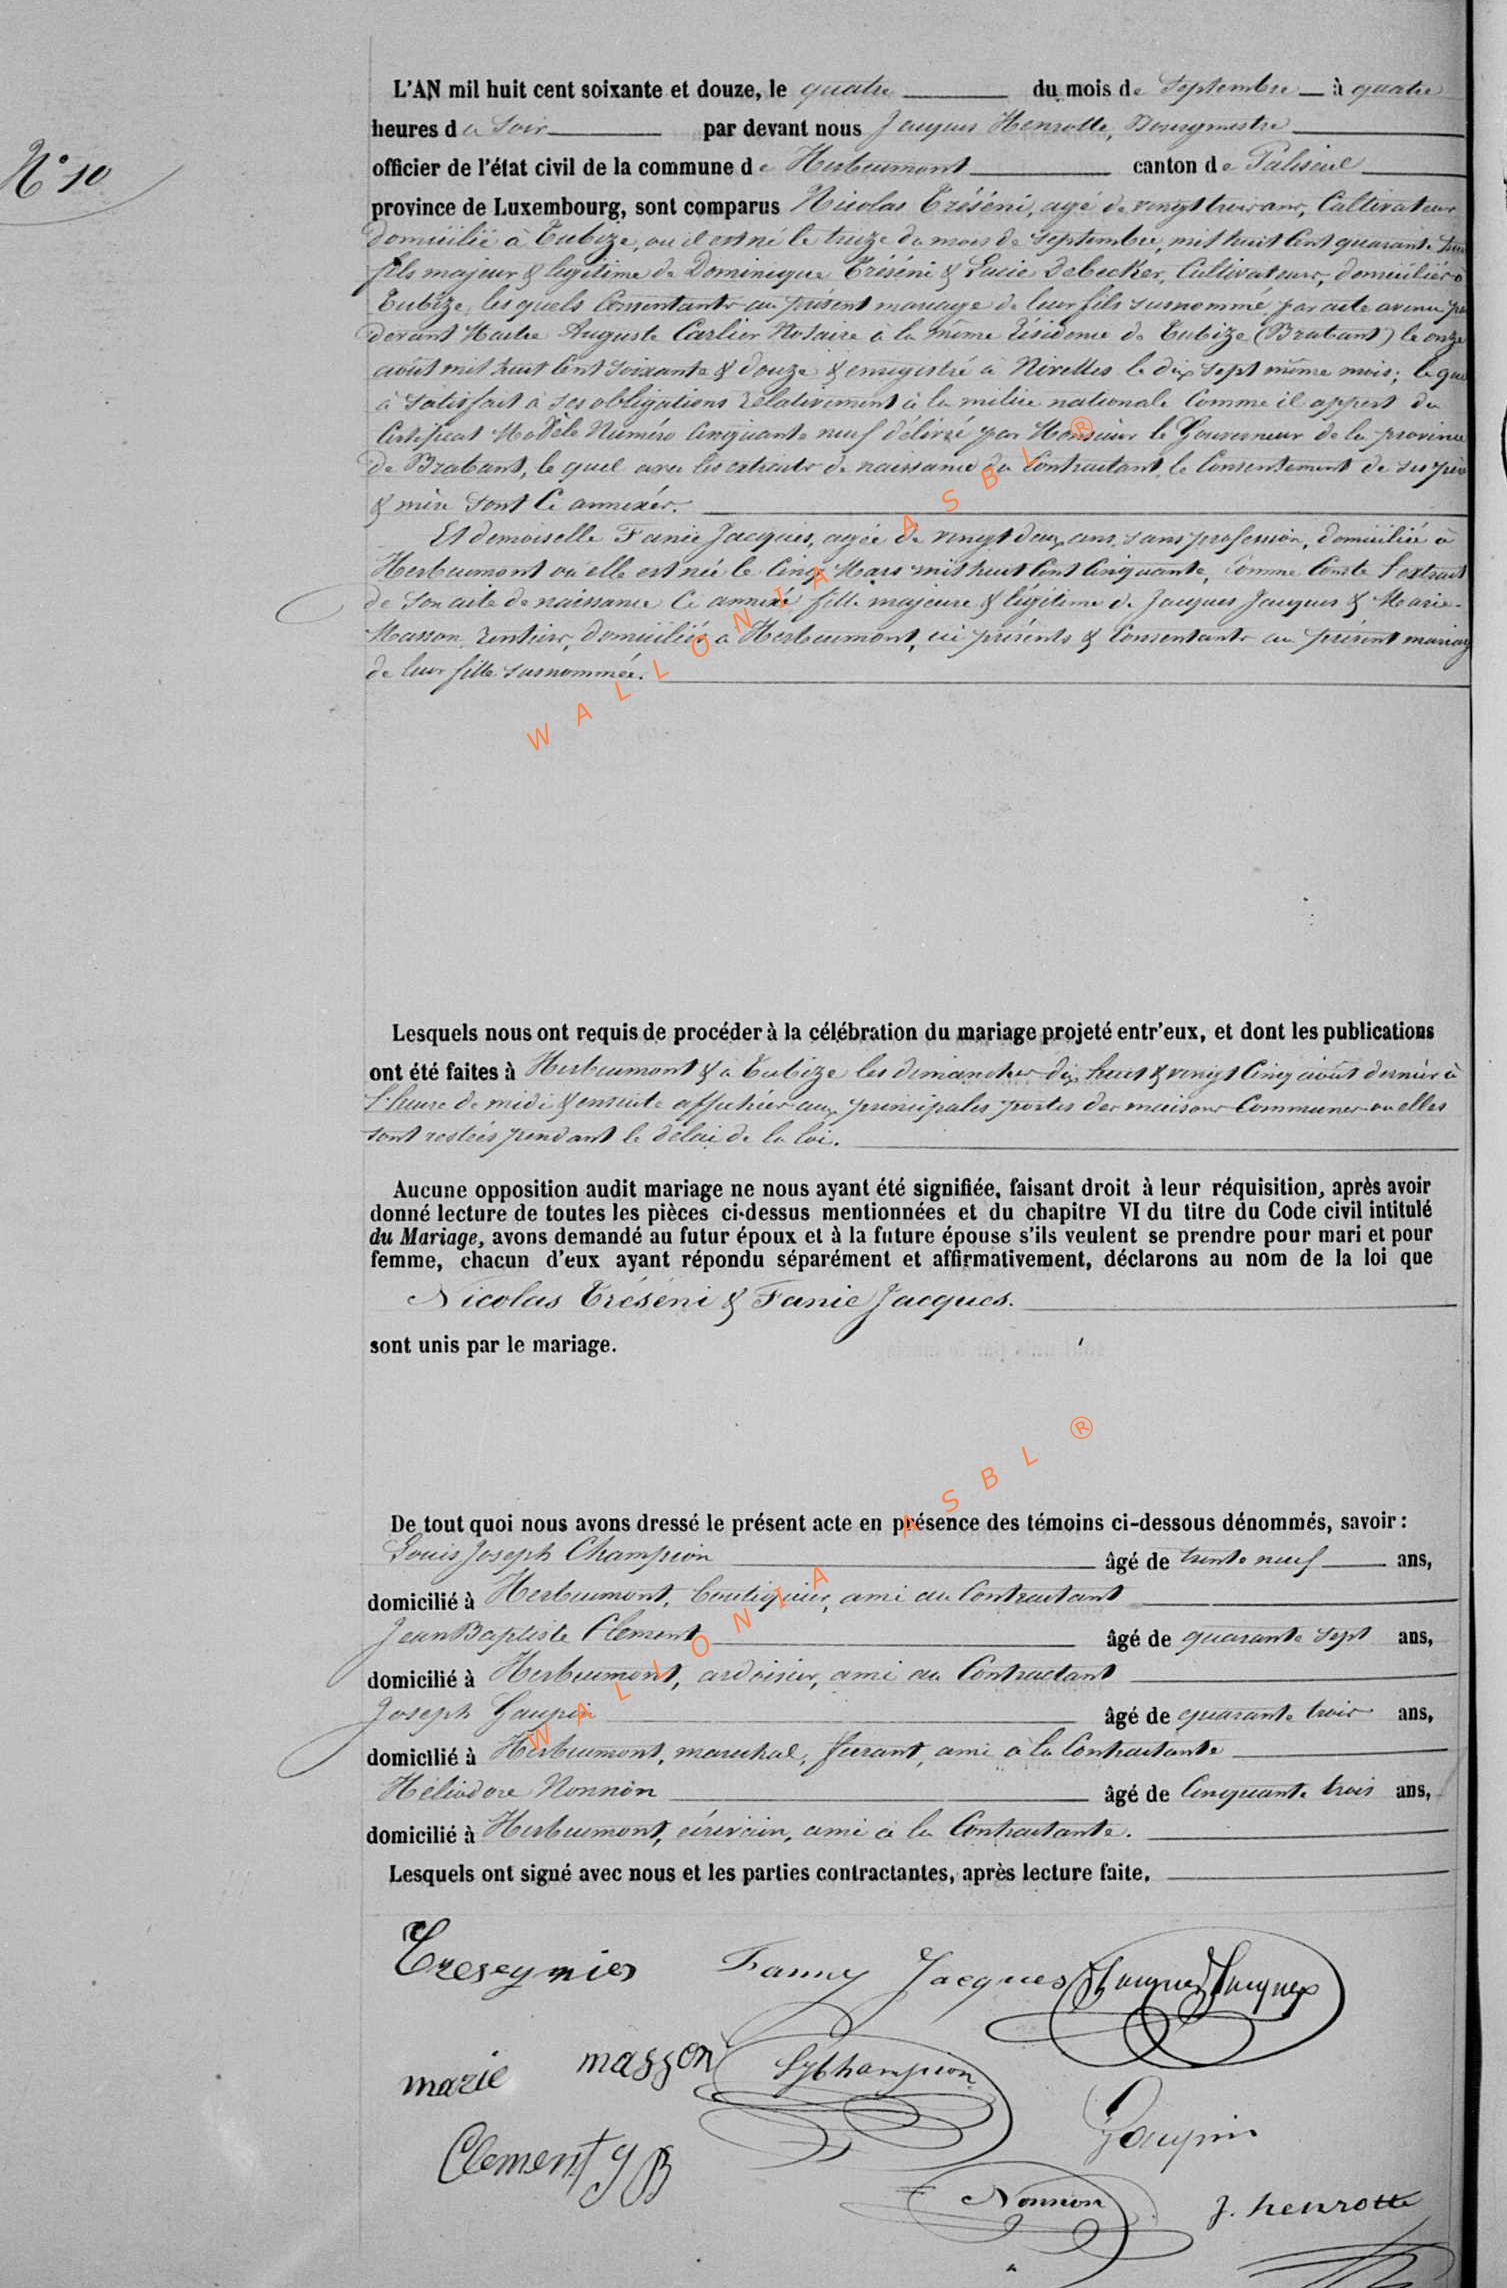 N° 10
L'AN mil huit cent soixante et douze, le quatre du mois de Septembre à quatre
heures du soir par devant nous Jacques Henrotte, Bourgmestre
officier de l'état civil de la commune de Herbeumont canton de Paliseul
province de Luxembourg, sont comparus Nicolas Tréséni, agé de vingt trois ans, Cultivateur
domicilié à Tubize, où il est né le treize du mois de Septembre, mil huit Cent quarante
fils majeur & légitime de Dominique Tréséni & Lucie Debecker, Cultivateurs, domiciliés à
Tubize, lesquels Consentants au présent mariage de leur fils surnommé par acte avenu par
devant Maitre Auguste Carlier Notaire à la même résidence de Tubize (Brabant) le onze
août mil huit Cent soixante & douze & enregistré à Nivelles le dix sept même mois; lequel
à satisfait à ses obligations relativement à la milice nationale Comme il appert du
Certificat Modèle Numéro Cinquante neuf délivré par Monsieur le Gouverneur de la province
de Brabant, le quel avec les extraits de naissance du Contractant, le Consentement de ses père
& mère sont Ci annexés.
Et demoiselle Fanie Jacques, agée de vingt deux ans, sans profession, domiciliée à
Herbeumont où elle est née le Cinq Mars mil huit Cent Cinquante, Comme Conste l'extrait
de son acte de naissance Ci annexé fille majeure & légitime de Jacques Jacques & Marie
Masson, rentiers, domiciliés à Herbeumont, ici présents & Consentants au présent mariage
de leur fille surnommée.
Lesquels nous ont requis de procéder à la célébration du mariage projeté entr'eux, et dont les publications
ont été faites à Herbeumont & à Tubize les dimanches dix huit & vingt Cinq août dernier à
l'heure de midi & ensuite affichées aux principales portes des maisons Communes où elles
sont restées pendant le délai de la loi.
Aucune opposition audit mariage ne nous ayant été signifiée, faisant droit à leur réquisition, après avoir
donné lecture de toutes les pièces ci-dessus mentionnées et du chapitre VI du titre du Code civil intitulé
du Mariage, avons demandé au futur époux et à la future épouse s'ils veulent se prendre pour mari et pour
femme, chacun d'eux ayant répondu séparément et affirmativement, déclarons au nom de la loi que
Nicolas Tréséni & Fanie Jacques.
sont unis par le mariage.
De tout quoi nous avons dressé le présent acte en présence des témoins ci-dessous dénommés, savoir :
Louis Joseph Champion âgé de trente neuf ans,
domicilié à Herbeumont, boutiquier, ami du Contractant
Jean Baptiste Clement âgé de quarante sept ans,
domicilié à Herbeumont, ardoisier, ami du Contractant
Joseph Gaupin âgé de quarante trois ans,
domicilié à Herbeumont, marechal, ferrant, ami à la Contractante
Héliodore Nonnon âgé de Cinquante trois ans,
domicilié à Herbeumont, écrivain, ami à la Contractante.
Lesquels ont signé avec nous et les parties contractantes, après lecture faite.
Treseynies Fanny Jacques Jacques Jacques
marie masson Champion
Clement JB Gaupin
Nonnon J. henrotte
WALLONIA ASBL ®
WALLONIA ASBL ®